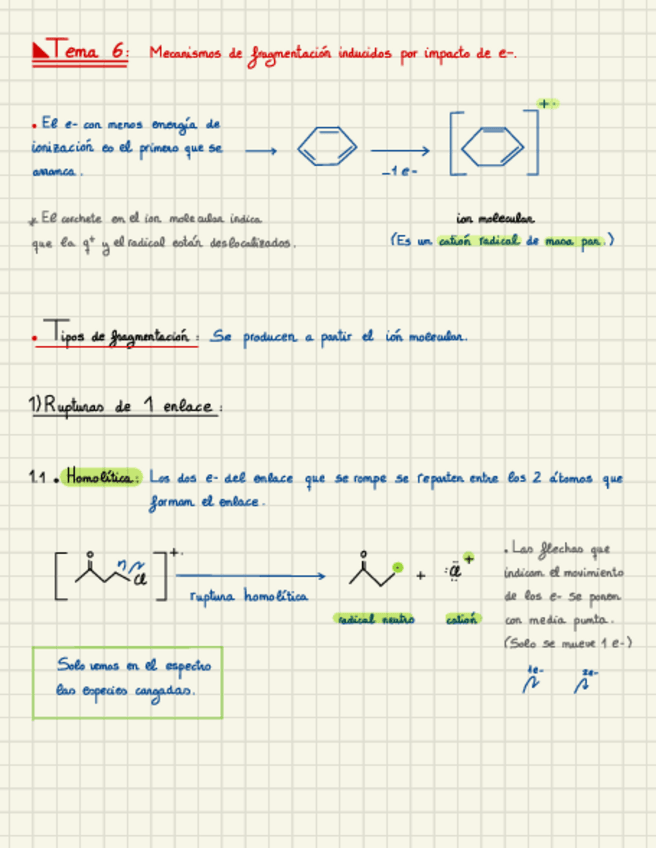 Tema 6: Mecanismos de fragmentación inducidos por impacto de e-.
• El e- con menos energía de
ionización es el primero que se
arranca.
-1 e-
+·
* El corchete en el ion molecular indica
que la q+ y el radical están deslocalizados.
ion molecular
(Es un catión radical de masa par.)
• Tipos de fragmentación: Se producen a partir el ión molecular.
1) Rupturas de 1 enlace:
1.1 • Homolítica: Los dos e- del enlace que se rompe se reparten entre los 2 átomos que
forman el enlace.
O Cl +·
ruptura homolítica
O + :Cl +
radical neutro catión
• Las flechas que
indican el movimiento
de los e- se ponen
con media punta.
(Solo se mueve 1 e-)
1e- 2e-
Solo vemos en el espectro
las especies cargadas.